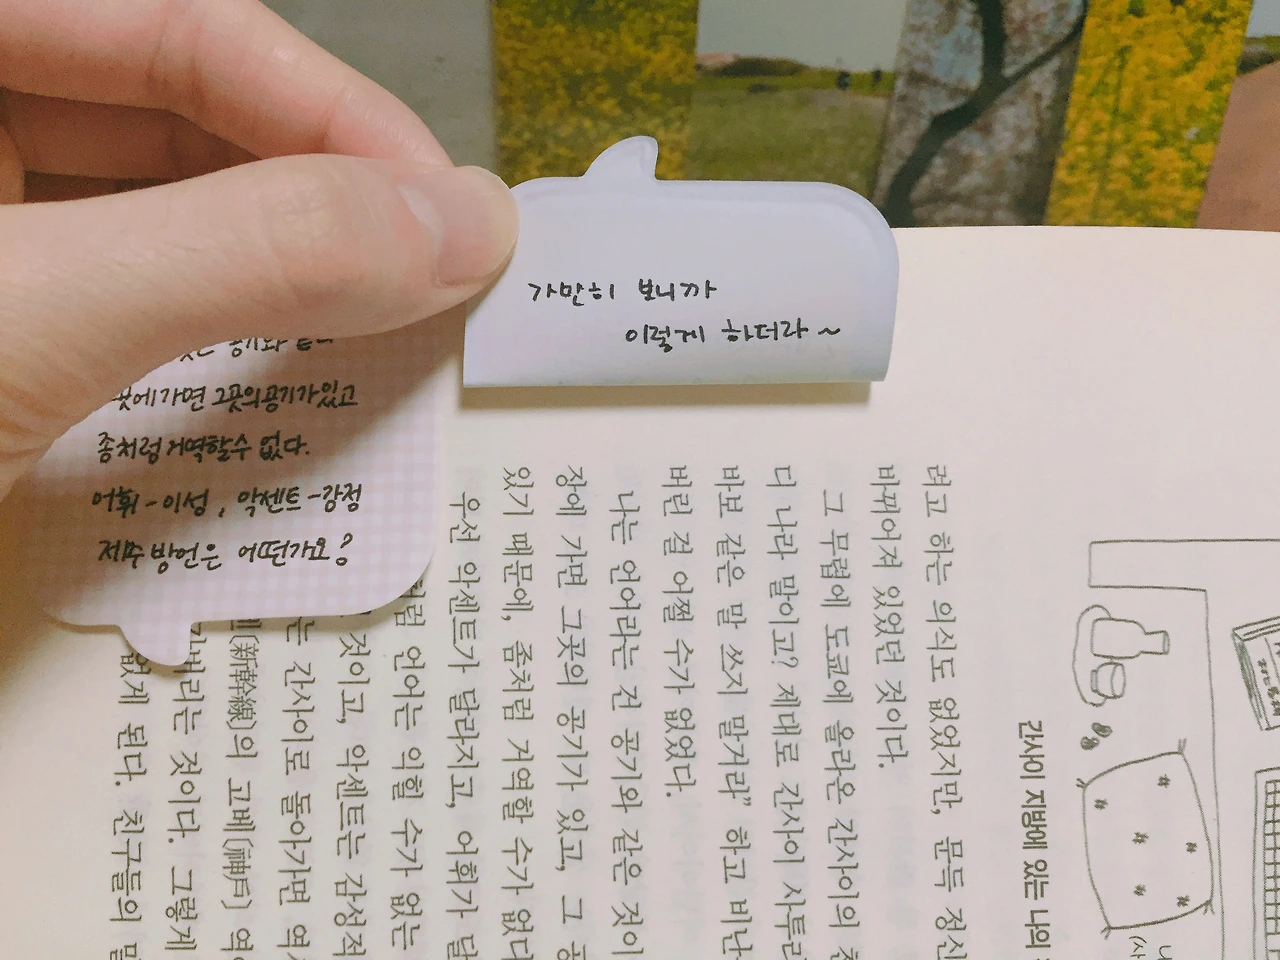 가만히 보니까
이렇게 하더라~
공기와
곳에 가면 그곳의 공기가 있고
좀처럼 거역할 수 없다.
어휘-이성, 악센트-감정
제주 방언은 어떤가요?
간사이 지방에 있는 나의
려고 하는 의식도 없었지만, 문득 정신
바뀌어져 있었던 것이다.
그 무렵에 도쿄에 올라온 간사이의
디 나라 말이고? 제대로 간사이 사투리
바보 같은 말 쓰지 말거라" 하고 비난
버린 걸 어쩔 수가 없었다.
나는 언어라는 건 공기와 같은 것이
장에 가면 그곳의 공기가 있고, 그
있기 때문에, 좀처럼 거역할 수가 없다
우선 악센트가 달라지고, 어휘가 달
언어는 익힐 수가 없는
것이고, 악센트는 감성적
는 간사이로 돌아가면 역시
(新幹線)의 고베(神戶) 역
버리는 것이다. 그렇게
없게 된다. 친구들의 말